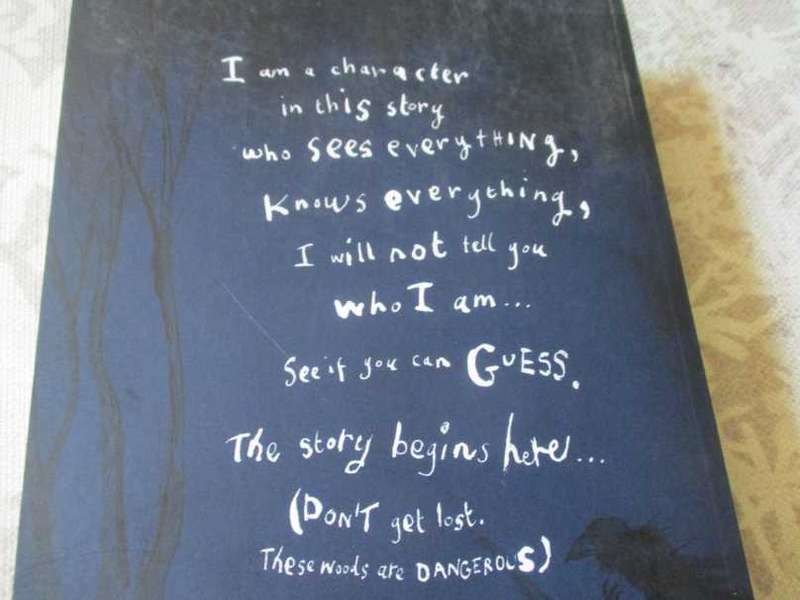 I am a character
in this story
who sees everyTHING,
Knows everything,
I will not tell you
who I am...
See if you can GuESS.
The story begins here...
(DON'T get lost.
These woods are DANGEROUS)